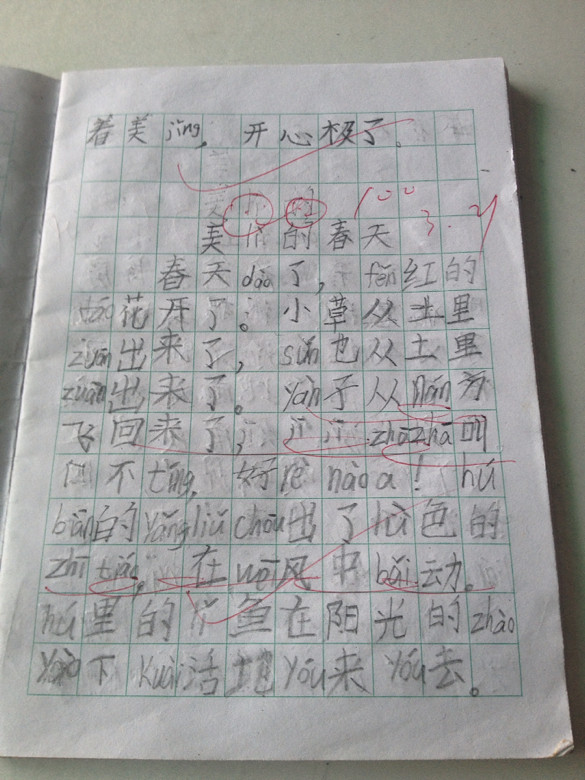 着美jǐng，开心极了。
100
3.21
美的春天
春天dào了，fěn红的
táo花开了。小草从土里
zuān出来了，sǔn也从土里
zuān出来了。yàn子从nán方
飞回来了，jī jī zhā zhā叫
不tíng，好rè nào a！hú
bān的yáng liǔ chōu出了lǜ色的
zhī tiáo，在wēi风中bǎi动。
hú里的鱼在阳光的zhào
yào下kuài活地yóu来yóu去。